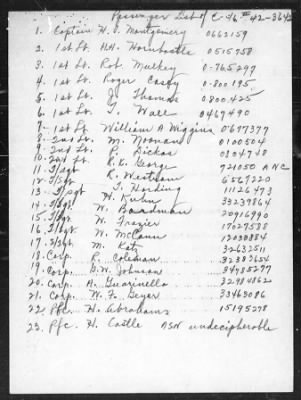 Passenger List of C-46 # 42-364
1. Captain H. J. Montgomery 0662159
2. 1st Lt. H.H. Hornbostle 0515758
3. 1st Lt. Rob. Mulkey 0-765297
4. 1st Lt. Roger Casey 0-800195
5. 1st Lt. J. Thomas 0800425
6. 1st Lt. T. Wall 0467490
7. 1st Lt. William A Wiggins 0677377
8. 2nd Lt. M. Noonan 0100504
9. 2nd Lt. P. Dickas
10. 2nd Lt. R.K. George 721050 ANC
11. T/Sgt R. Westrum 6567220
12. T. Harding 11126473
13. T/Sgt H. Kuhn 33239864
14. T/Sgt W. Boardman 20916990
15. W. Frazier 17027538
16. T/Sgt W. McCann 12030884
17. S/Sgt M. Katz 32632511
18. Corp. R. Coleman 32382654
19. Corp. G.W. Johnson 34785277
20. Corp. A. Guarinello 32984862
21. Corp. W. F. Geyer 33463086
22. Pfc. H. Abrahams 15195278
23. Pfc. H. Castle ASN undecipherable